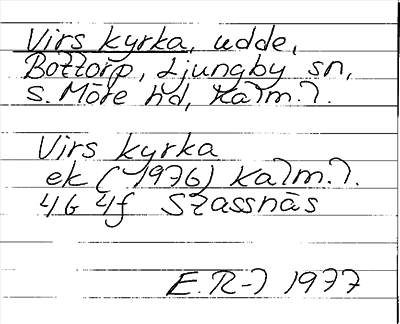 Virs kyrka, udde,
Bottorp, Ljungby sn,
S. Möre hd, Kalm. l.
Virs kyrka
ek (~1976) Kalm. l.
4G 4f Stassnäs
E. R-l 1977